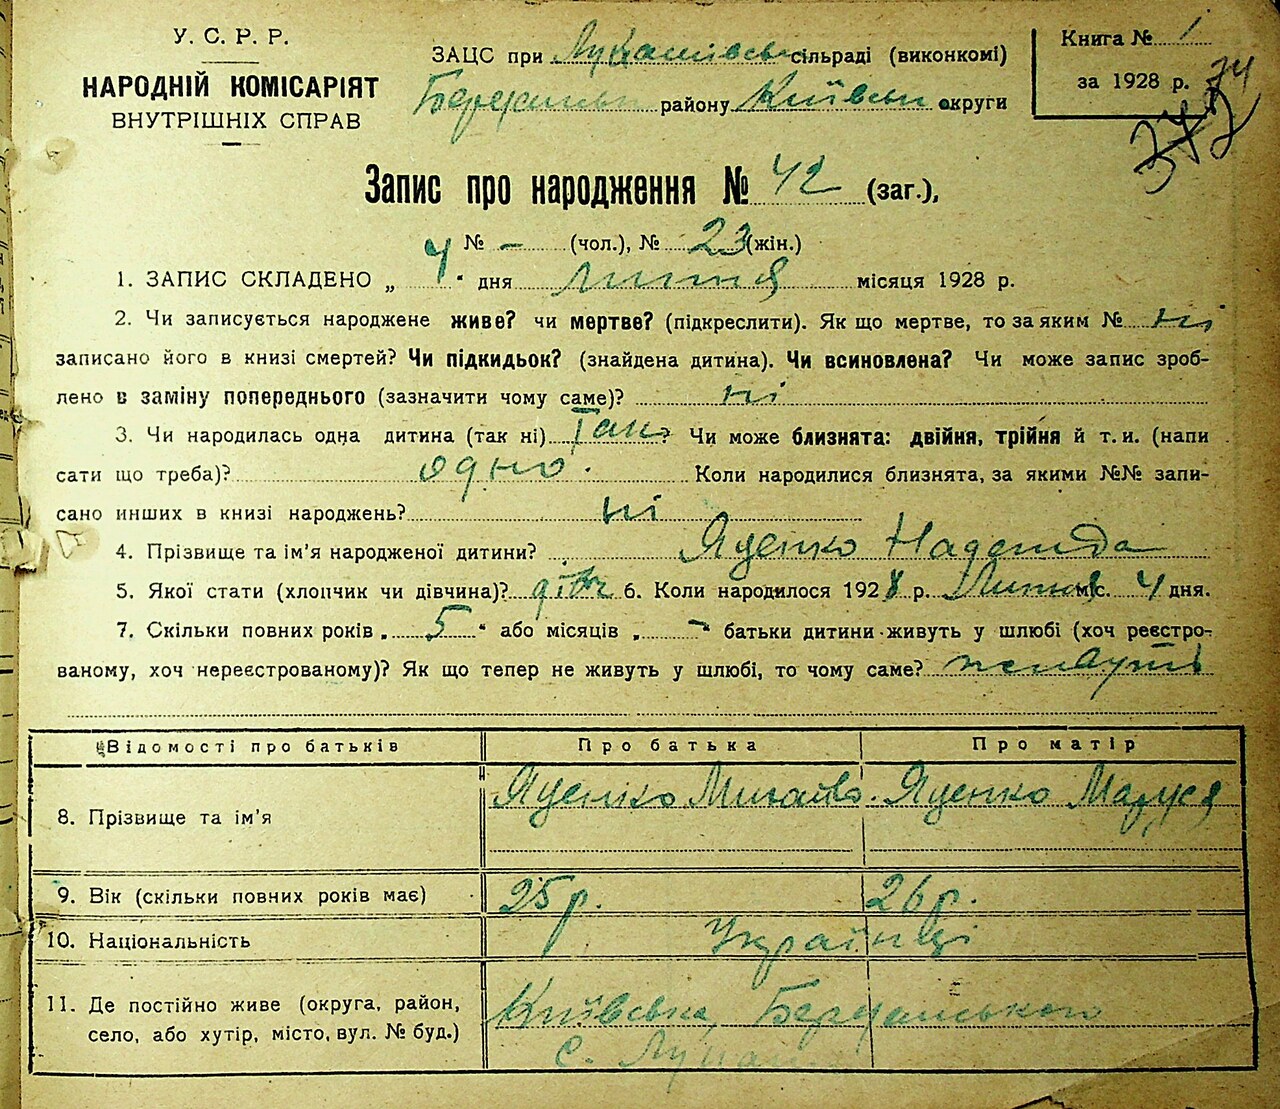 У. С. Р. Р.
НАРОДНІЙ КОМІСАРІЯТ
ВНУТРІШНІХ СПРАВ
ЗАЦС при Лукашівськ сільраді (виконкомі)
району Київськ округи
Книга № 1
за 1928 р. 74
Запис про народження № 42 (заг.),
№ - (чол.), № 23 (жін.)
1. ЗАПИС СКЛАДЕНО „ 4 " дня липня місяця 1928 р.
2. Чи записується народжене живе? чи мертве? (підкреслити). Як що мертве, то за яким № ні
записано його в книзі смертей? Чи підкидьок? (знайдена дитина). Чи всиновлена? Чи може запис зроб-
лено в заміну попереднього (зазначити чому саме)? ні
3. Чи народилась одна дитина (так ні) Так Чи може близнята: двійня, трійня й т. и. (напи
сати що треба)? одно. Коли народилися близнята, за якими №№ запи-
сано инших в книзі народжень? ні
4. Прізвище та ім'я народженої дитини? Яценко Надежда
5. Якої стати (хлопчик чи дівчина)? дівч 6. Коли народилося 1928 р. Липня міс. 4 дня.
7. Скільки повних років „ 5 " або місяців „ - " батьки дитини живуть у шлюбі (хоч реєстро-
ваному, хоч нереєстрованому)? Як що тепер не живуть у шлюбі, то чому саме? живуть
Відомості про батьків Про батька Про матір
8. Прізвище та ім'я Яценко Михайло. Яценко Маруся
9. Вік (скільки повних років має) 25 р. 26 р.
10. Національність Українці
11. Де постійно живе (округа, район, Київська,
село, або хутір, місто, вул. № буд.) с.